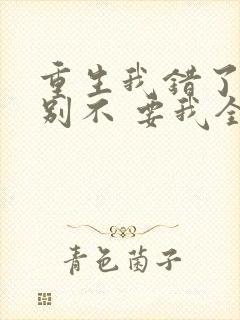 重生我错了
别不 要我全
青色菌子